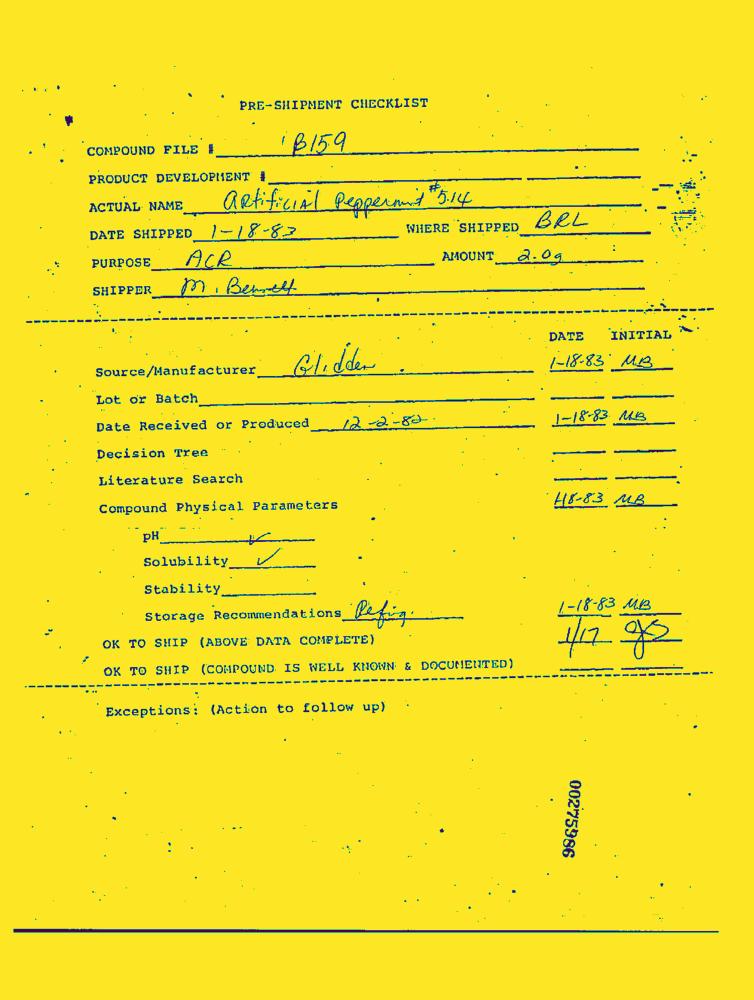 PRE-SHIPMENT CHECKLIST
COMPOUND FILE # B159
PRODUCT DEVELOPMENT #
ACTUAL NAME Artificial Peppermint #514
DATE SHIPPED 1-18-83 WHERE SHIPPED BRL
PURPOSE ACR AMOUNT 2.0g
SHIPPER M. Bennett
DATE INITIAL
Source/Manufacturer Glidden 1-18-83 MB
Lot or Batch
Date Received or Produced 12-2-82 1-18-83 MB
Decision Tree
Literature Search
Compound Physical Parameters 1-18-83 MB
pH ✓
Solubility ✓
Stability
Storage Recommendations Refrig. 1-18-83 MB
OK TO SHIP (ABOVE DATA COMPLETE) 1/17
OK TO SHIP (COMPOUND IS WELL KNOWN & DOCUMENTED)
Exceptions: (Action to follow up)
00275986